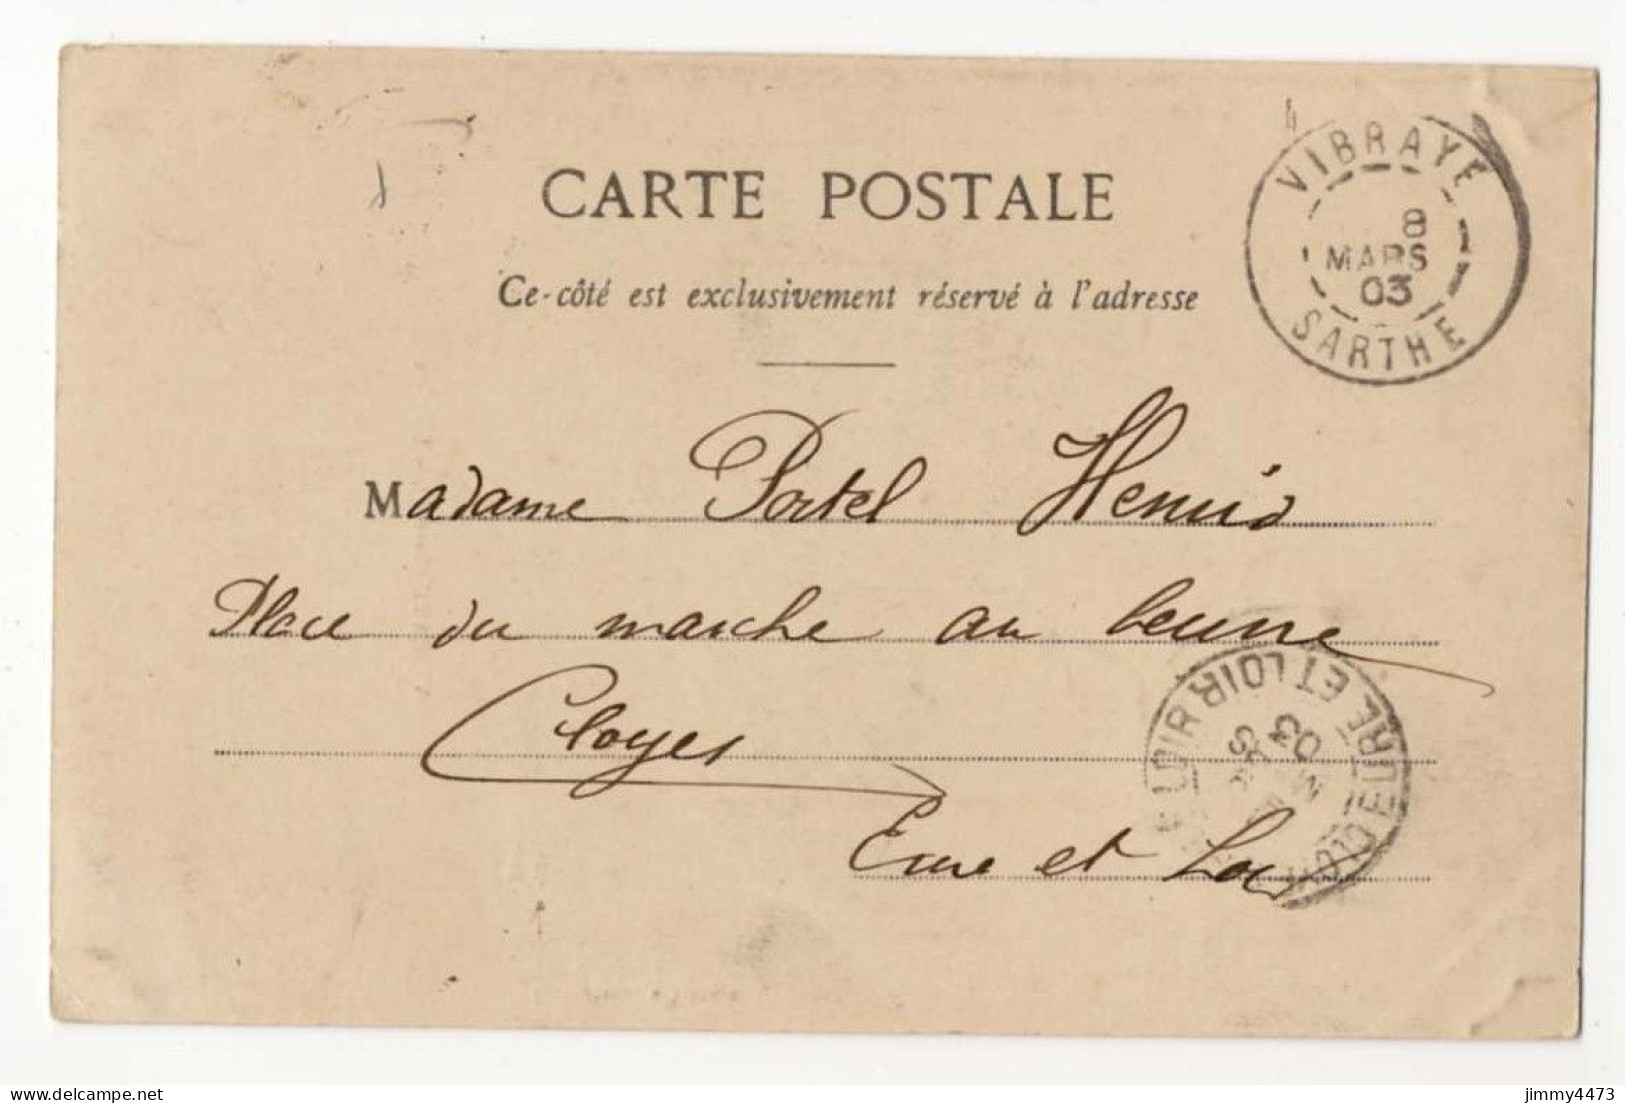 CARTE POSTALE
Ce côté est exclusivement réservé à l'adresse
VIBRAYE
8
MARS
03
SARTHE
Madame Portel
Place du marche au beurre
Cloyes
Eure et Loir
EURE ET LOIR
03
delcampe.net
jimmy4473